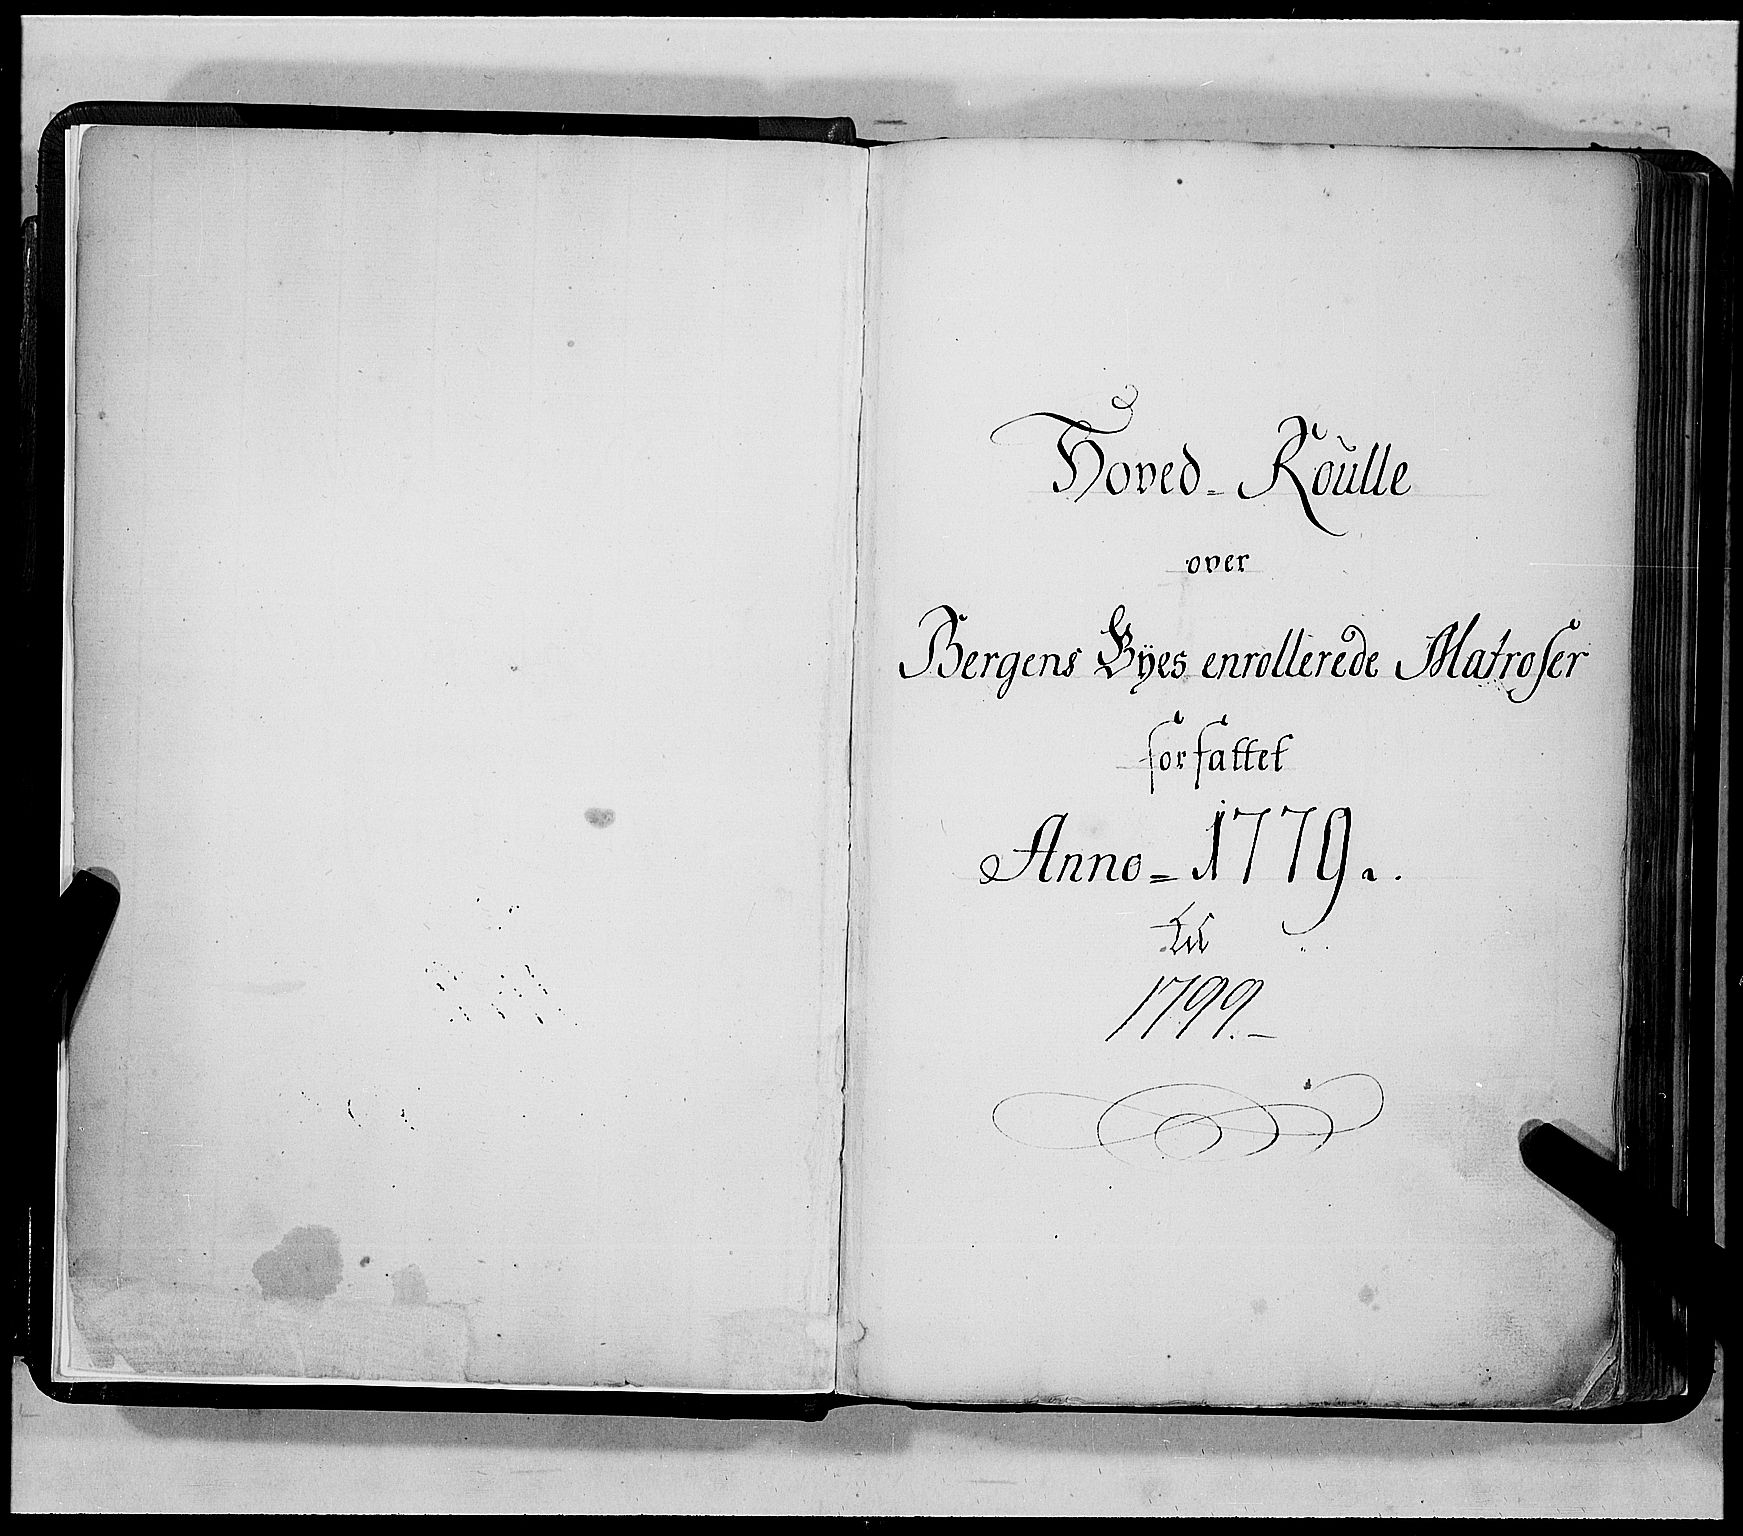 Hoved- Roulle
over
Bergens Byes enrollerede Matroser
forfattet
Anno = 1779.
til
1799.-